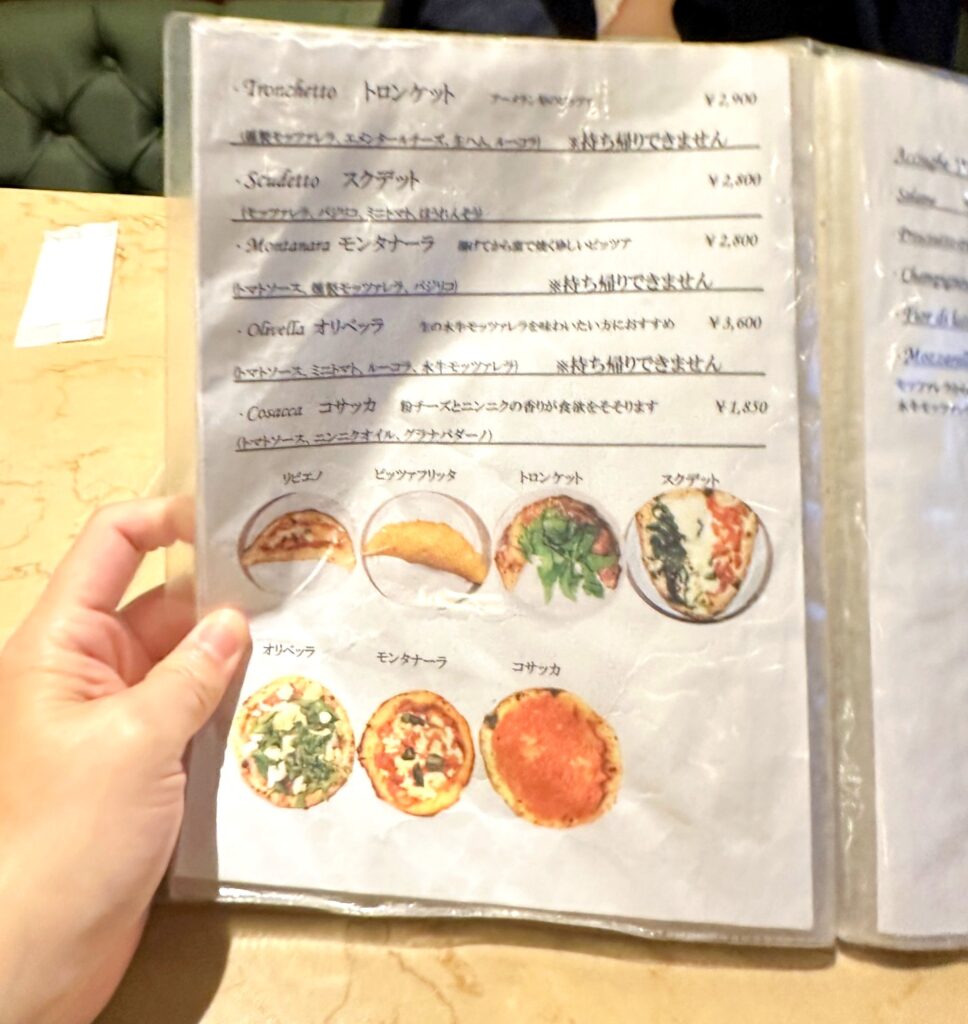 ・Tronchetto トロンケット ¥2,900
(燻製モッツァレラ、エメンタールチーズ、生ハム、ルーコラ) ※持ち帰りできません
・Scudetto スクデット ¥2,800
(モッツァレラ、バジリコ、ミニトマト、ほうれんそう)
・Montanara モンタナーラ 揚げてから窯で焼く珍しいピッツア ¥2,800
(トマトソース、燻製モッツァレラ、バジリコ) ※持ち帰りできません
・Olivella オリベッラ 生の水牛モッツァレラを味わいたい方におすすめ ¥3,600
(トマトソース、ミニトマト、ルーコラ、水牛モッツァレラ) ※持ち帰りできません
・Cosacca コサッカ 粉チーズとニンニクの香りが食欲をそそります ¥1,850
(トマトソース、ニンニクオイル、グラナパダーノ)
リピエノ ピッツァフリッタ トロンケット スクデット
オリベッラ モンタナーラ コサッカ
Acciughe
Salame
Prosciutto
Champignon
・Fior di
・Mozzarella
モッツァレラから
水牛モッツァレ